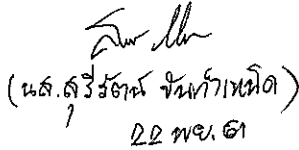 (นส.สุรีรัตน์ ขันกำเหนิด)
22 พย. 61